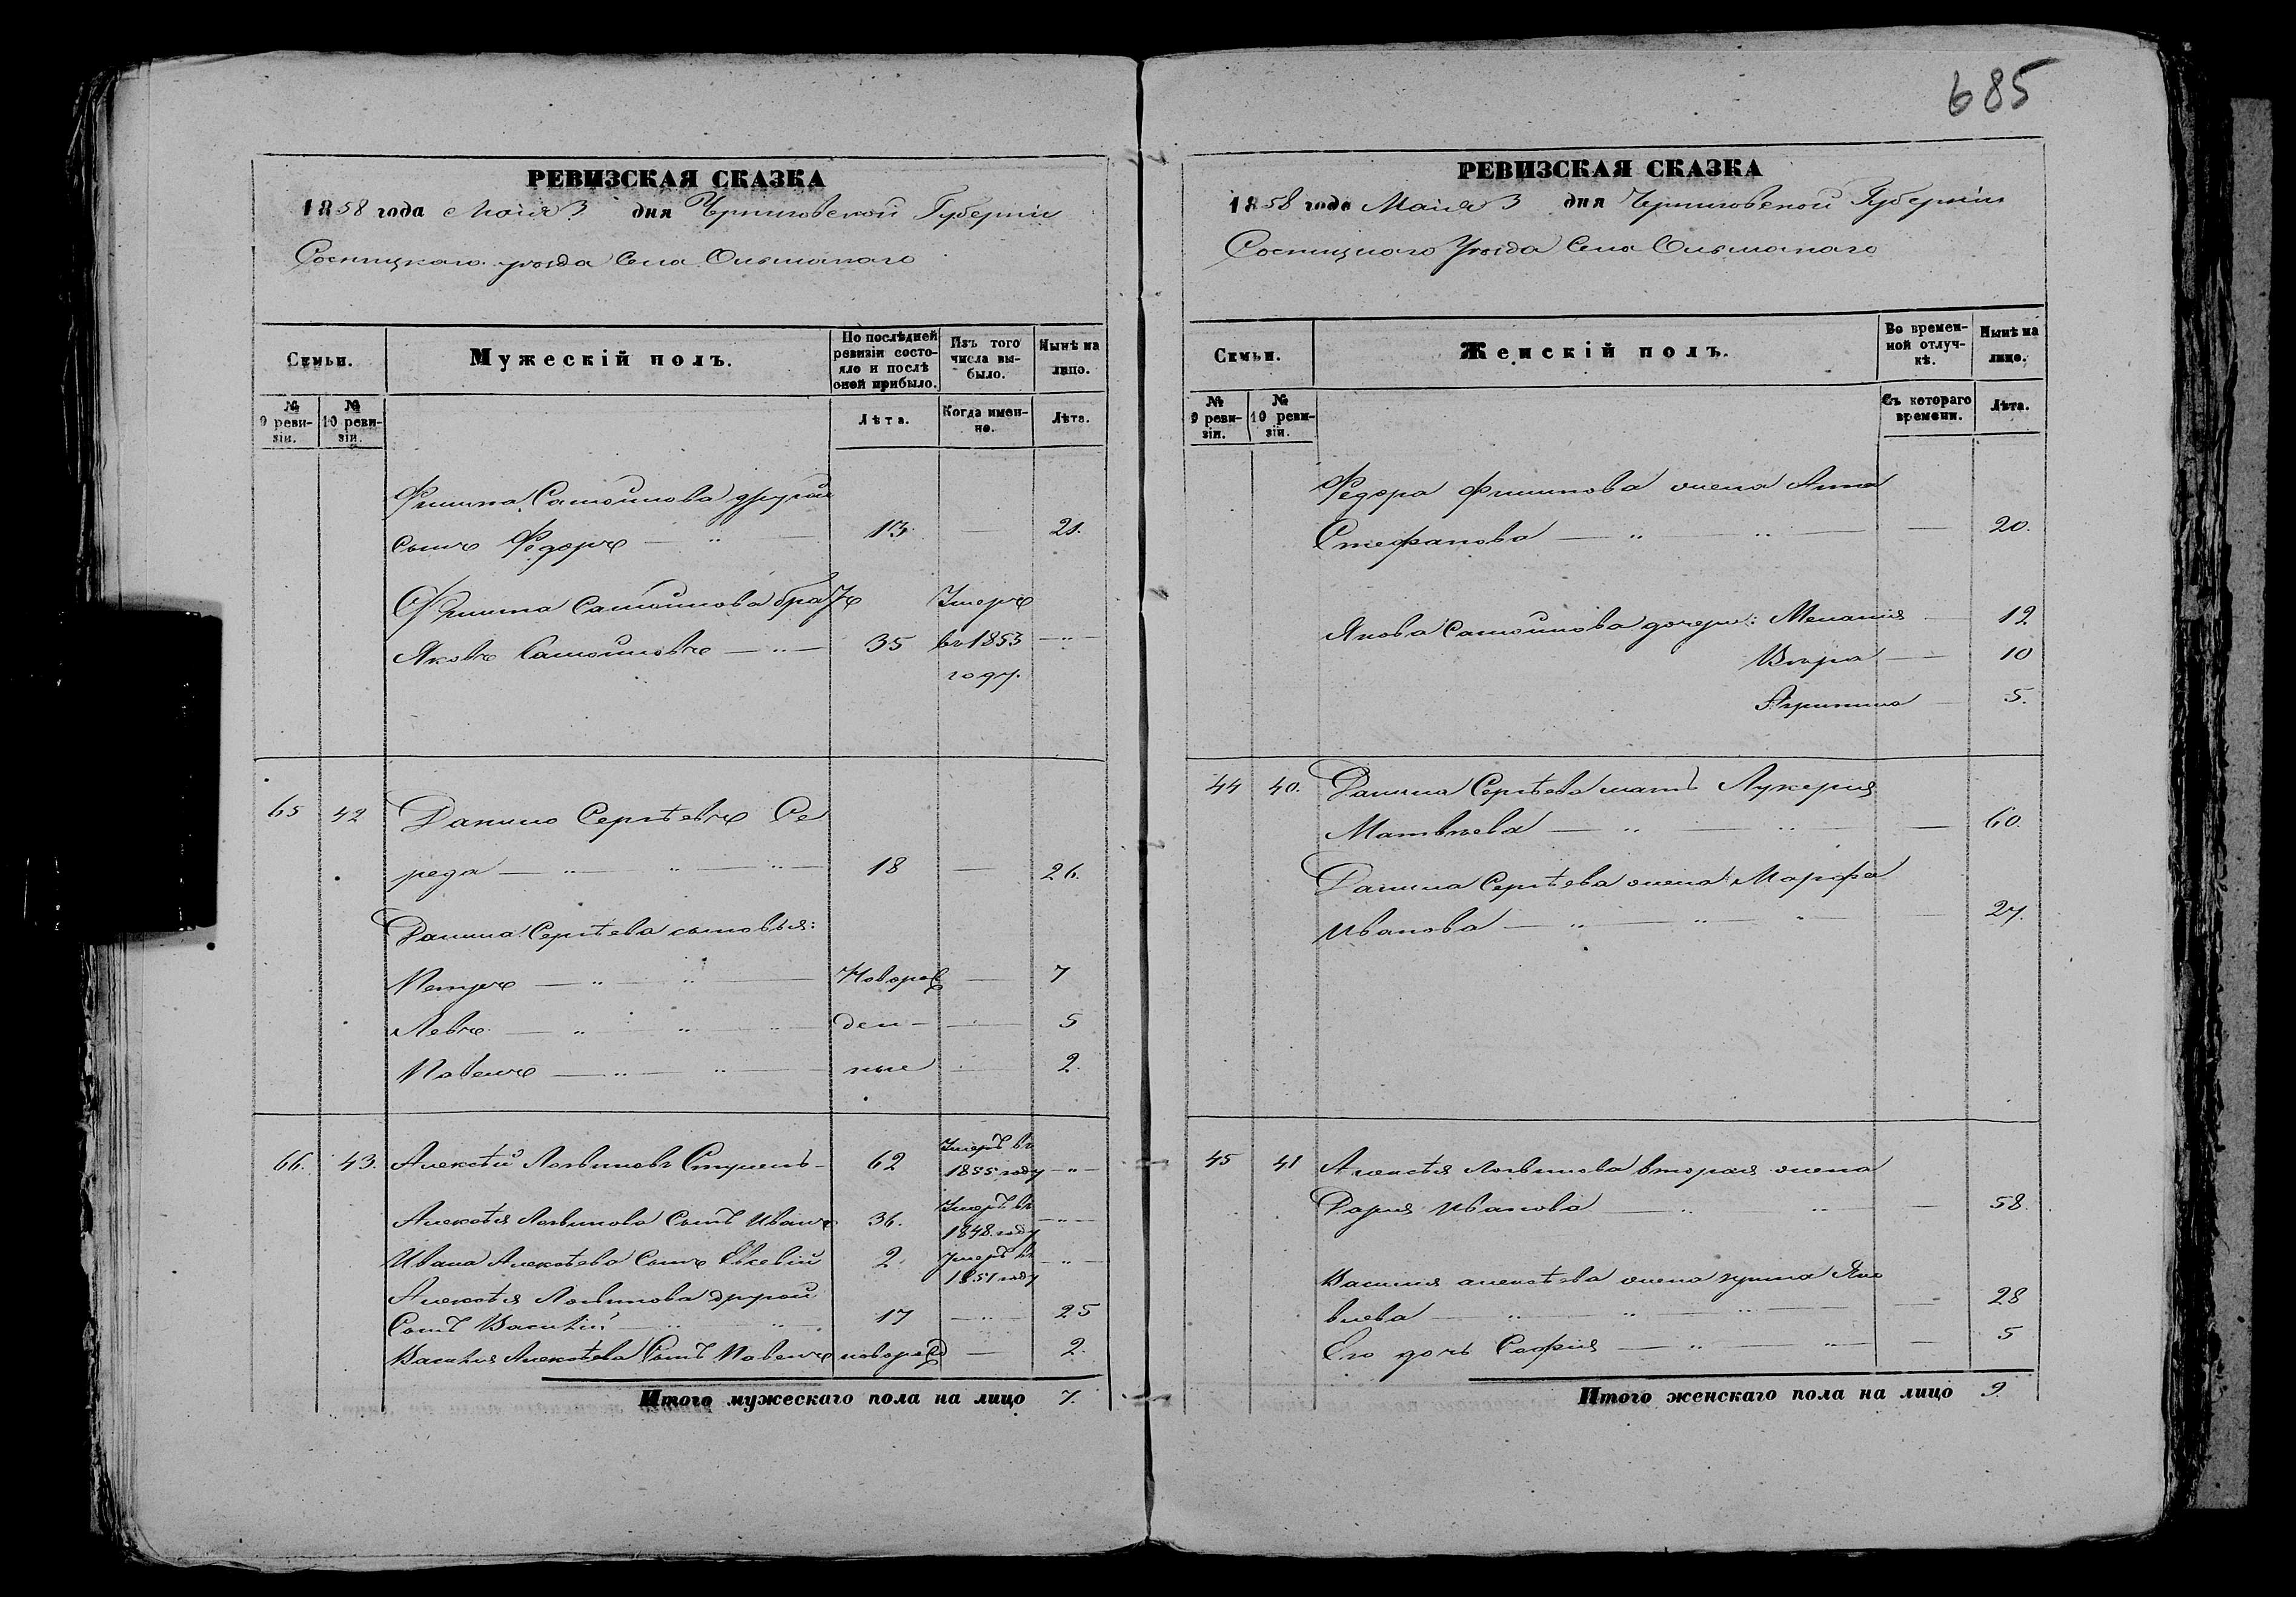 РЕВИЗСКАЯ СКАЗКА
1858 года Маія 3 дня Черниговской Губерніи
Сосницкаго уѣзда Села Ольшанаго
Семьи. Мужескій полъ. По послѣдней ревизіи состояло и послѣ оной прибыло. Изъ того числа выбыло. Нынѣ на лицо.
№ 9 ревизіи. № 10 ревизіи. Лѣта. Когда именно. Лѣта.
Филипа Самойлова другой
сынъ Федоръ — „ — 13. — 21.
Филипа Самойлова братъ Умеръ
Яковъ Самойловъ — „ — 35 въ 1853 — „ —
году.
65 42 Данило Сергѣевъ Се
реда — „ — „ — „ — 18 — 26.
Данила Сергѣева сыновья:
Петръ — „ — „ — Новорож — 7
Левъ — „ — „ — „ ден — — 5
Павелъ — „ — „ — ные — 2.
66. 43. Алексѣй Логвиновъ 62 Умеръ въ
1855 году — „ —
Алексѣя Логвинова Сынъ Иванъ 36. Умеръ въ
1848. году — „ —
Ивана Алексѣева Сынъ Евсевій 2. Умеръ въ
1851 году — „ —
Алексѣя Логвинова другой
Сынъ Василій — „ — „ — 17 — „ — 25
Василія Алексѣева Сынъ Павелъ новорожд — 2.
Итого мужескаго пола на лицо 7.
685
РЕВИЗСКАЯ СКАЗКА
1858 года Маія 3 дня Черниговской Губерніи
Сосницкаго Уѣзда Села Ольшанаго
Семьи. Женскій полъ. Во временной отлучкѣ. Нынѣ на лицо.
№ 9 ревизіи. № 10 ревизіи. Съ котораго времени. Лѣта.
Федора Филипова жена Анна
Стефанова — „ — „ — — 20.
Якова Самойлова дочери: Меланія — 12
Вѣра — 10
Агрипина — 5.
44 40. Данила Сергѣева мать Лукерія
Матвѣева — „ — „ — — 60.
Данила Сергѣева жена Марфа
Иванова — „ — „ — „ — — 27.
45 41 Алексѣя Логвинова вторая жена
Дарія Иванова — „ — „ — — 58.
Василія Алексѣева жена Яко
влева — „ — „ — „ — — 28
Его дочь Софія — „ — „ — — 5
Итого женскаго пола на лицо 9.